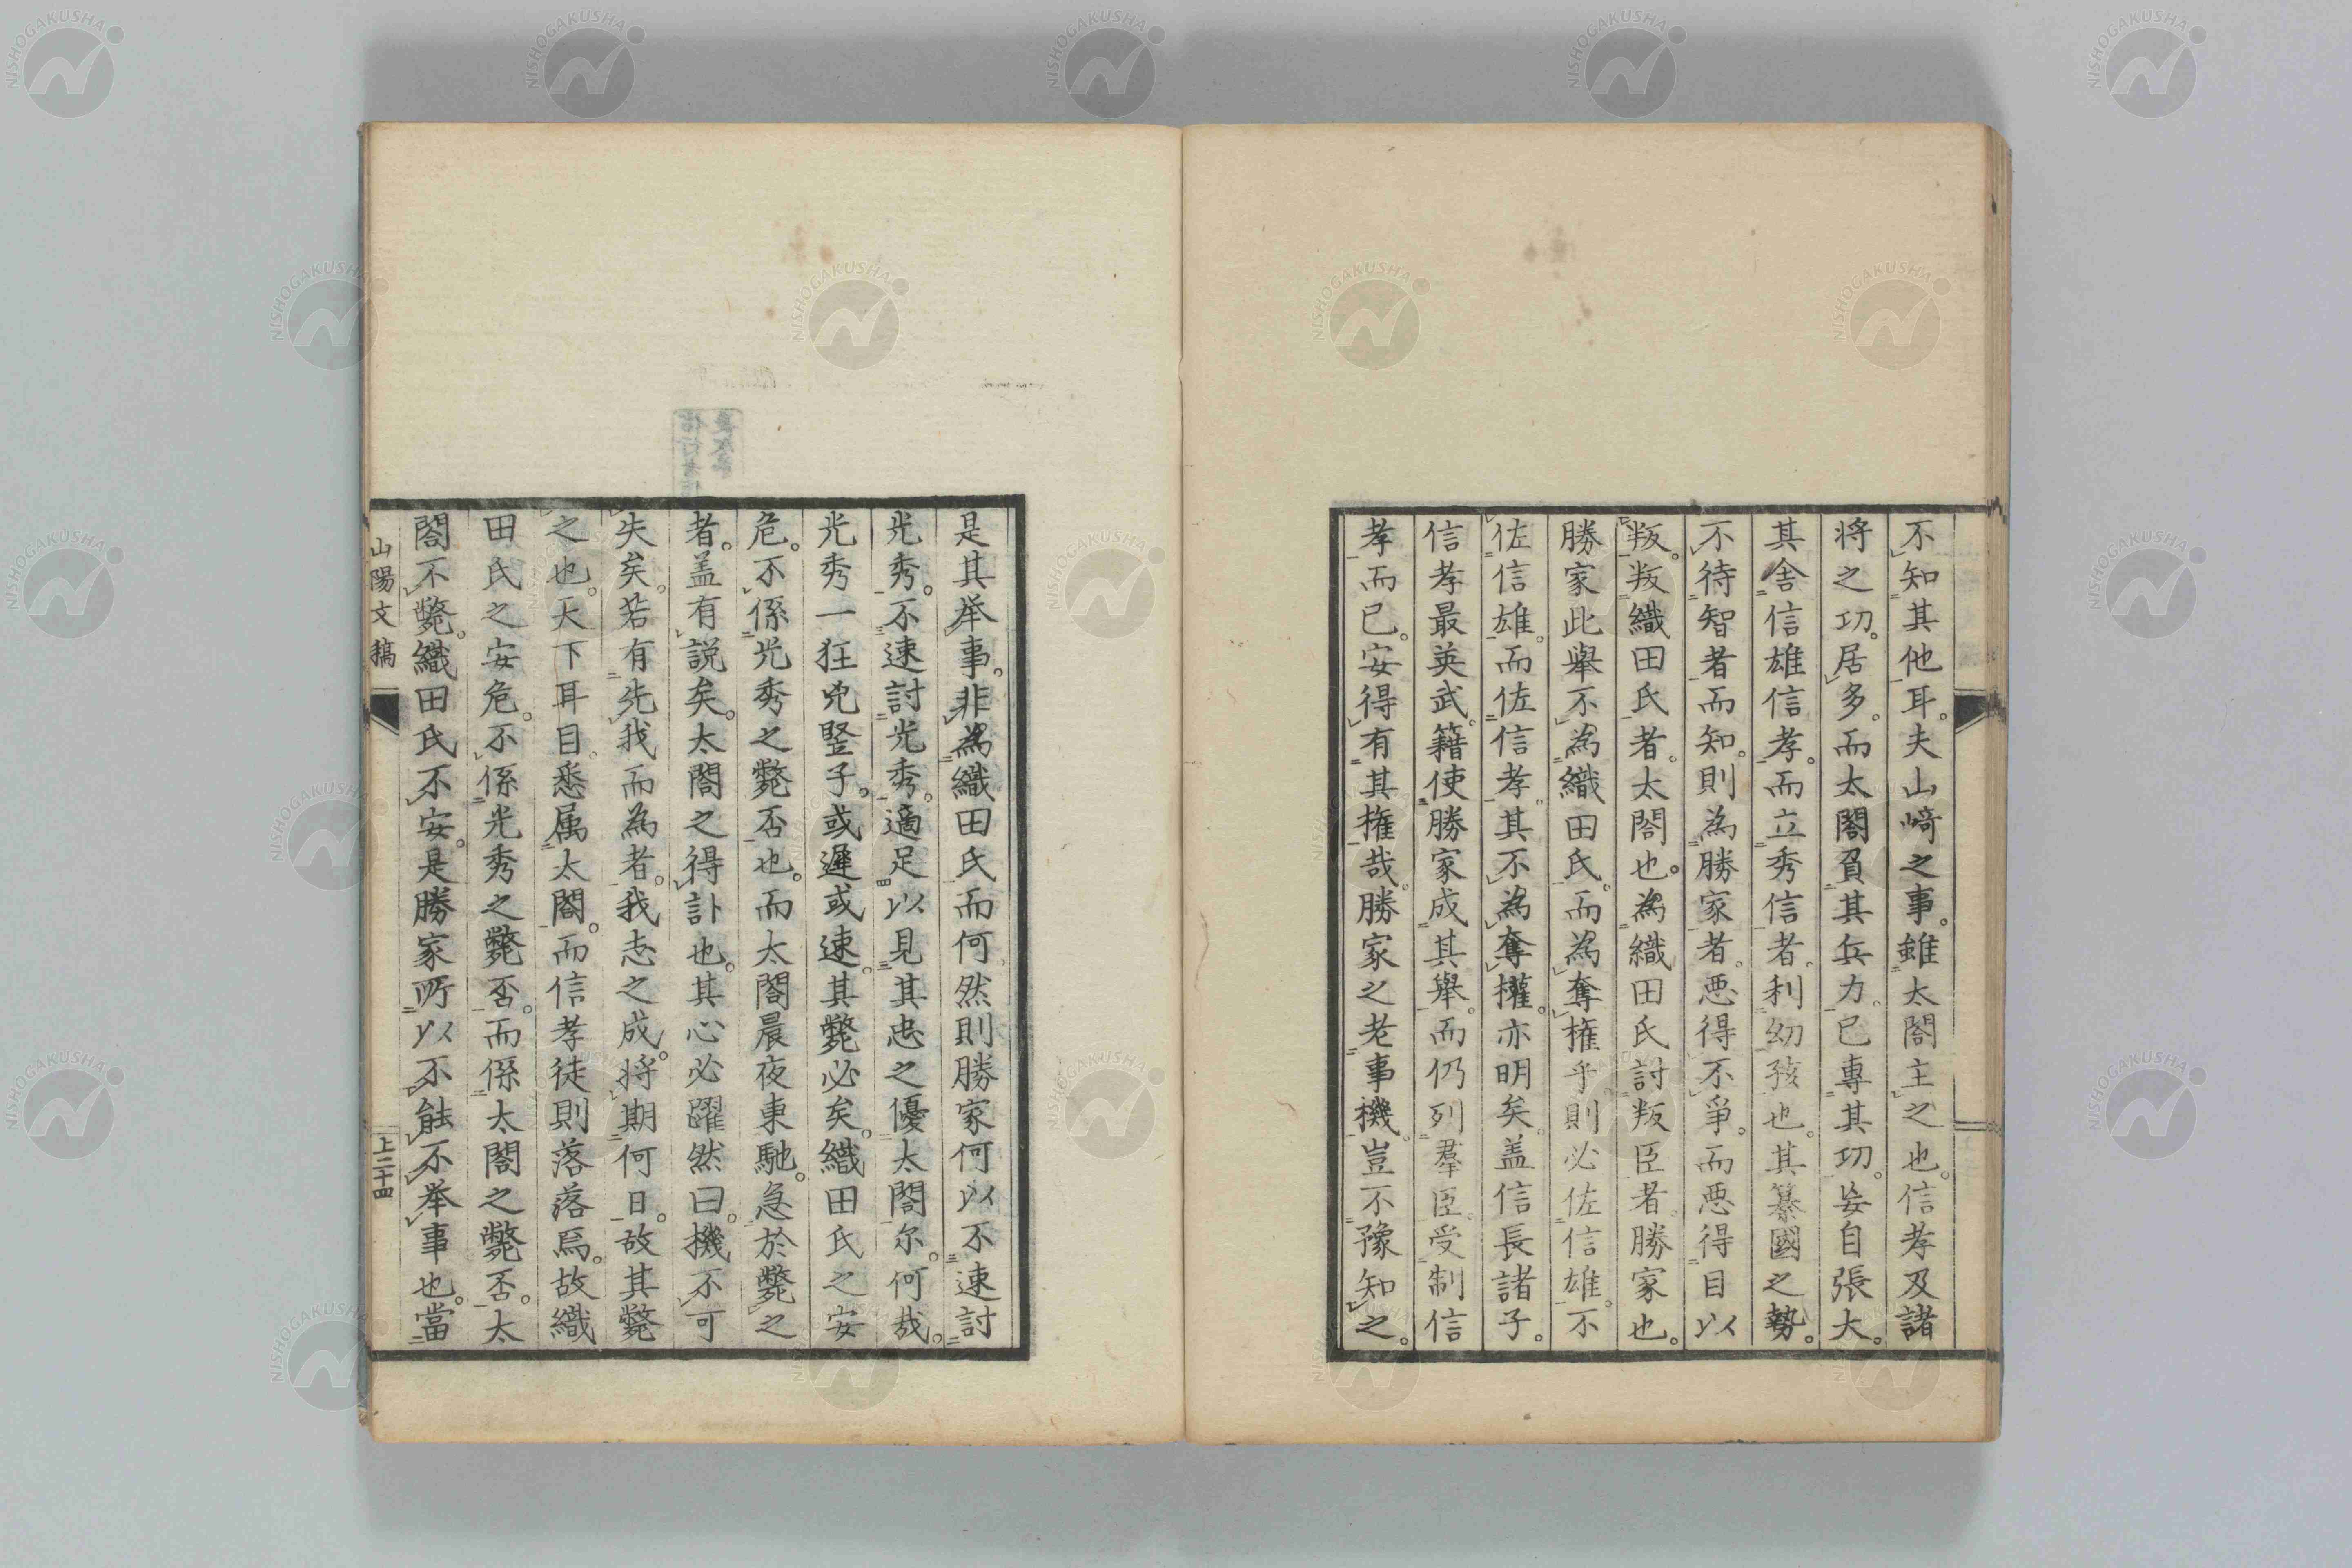 不知其他耳。夫山﨑之事。雖太閤主之也。信孝及諸
将之功。居多。而太閤負其兵力。已專其功。妄自張大。
其舍信雄信孝。而立秀信者。利幼孩也。其簒國之勢。
不待智者而知。則為勝家者。悪得不爭。而悪得目以
叛。叛織田氏者。太閤也。為織田氏討叛臣者。勝家也。
勝家此舉不為織田氏。而為奪権乎。則必佐信雄。不
佐信雄。而佐信孝。其不為奪權。亦明矣。盖信長諸子。
信孝最英武。籍使勝家成其舉。而仍列羣臣。受制信
孝而已。安得有其権哉。勝家之老事機。豈不豫知之。
是其举事。非為織田氏而何。然則勝家何以不速討
光秀。不速討光秀。適足以見其忠之優太閤尓。何哉。
光秀一狂兇竪子。或遲或速。其斃必矣。織田氏之安
危。不係光秀之斃否也。而太閤晨夜東馳。急於斃之
者。盖有説矣。太閤之得訃也。其心必躍然曰。機不可
失矣。若有先我而為者。我志之成。将期何日。故其斃
之也。天下耳目。悉属太閤。而信孝徒則落落焉。故織
田氏之安危。不係光秀之斃否。而係太閤之斃否。太
閤不斃。織田氏不安。是勝家所以不能不举事也。當
山陽文稿
上二十四
NISHOGAKUSHA